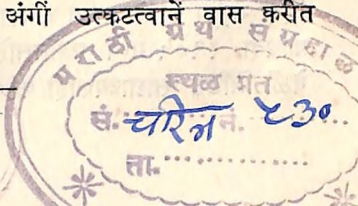 अंगीं उत्कटत्वानें वास करीत
मराठी ग्रंथ संग्रहाल
स्थळ प्रत
सं. चरित्र नं. ८३०
ता. ..............